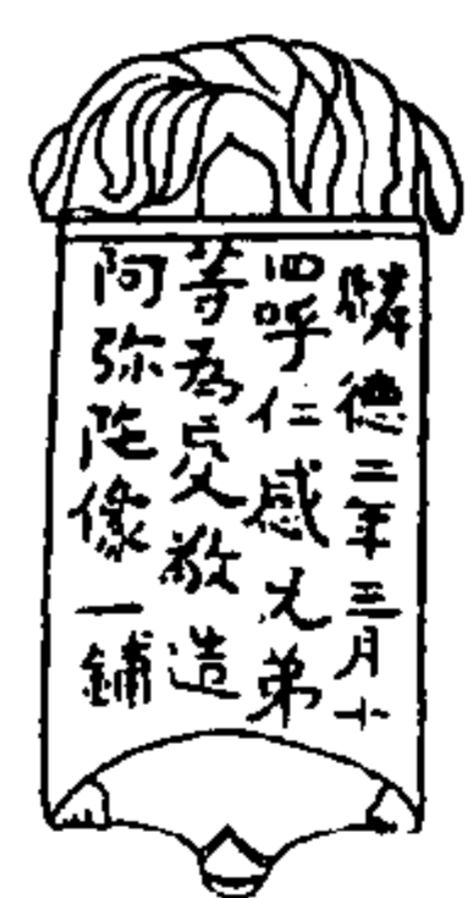 麟德三年三月十
四呼仁感兄弟
等為亡父敬造
阿弥陀像一鋪